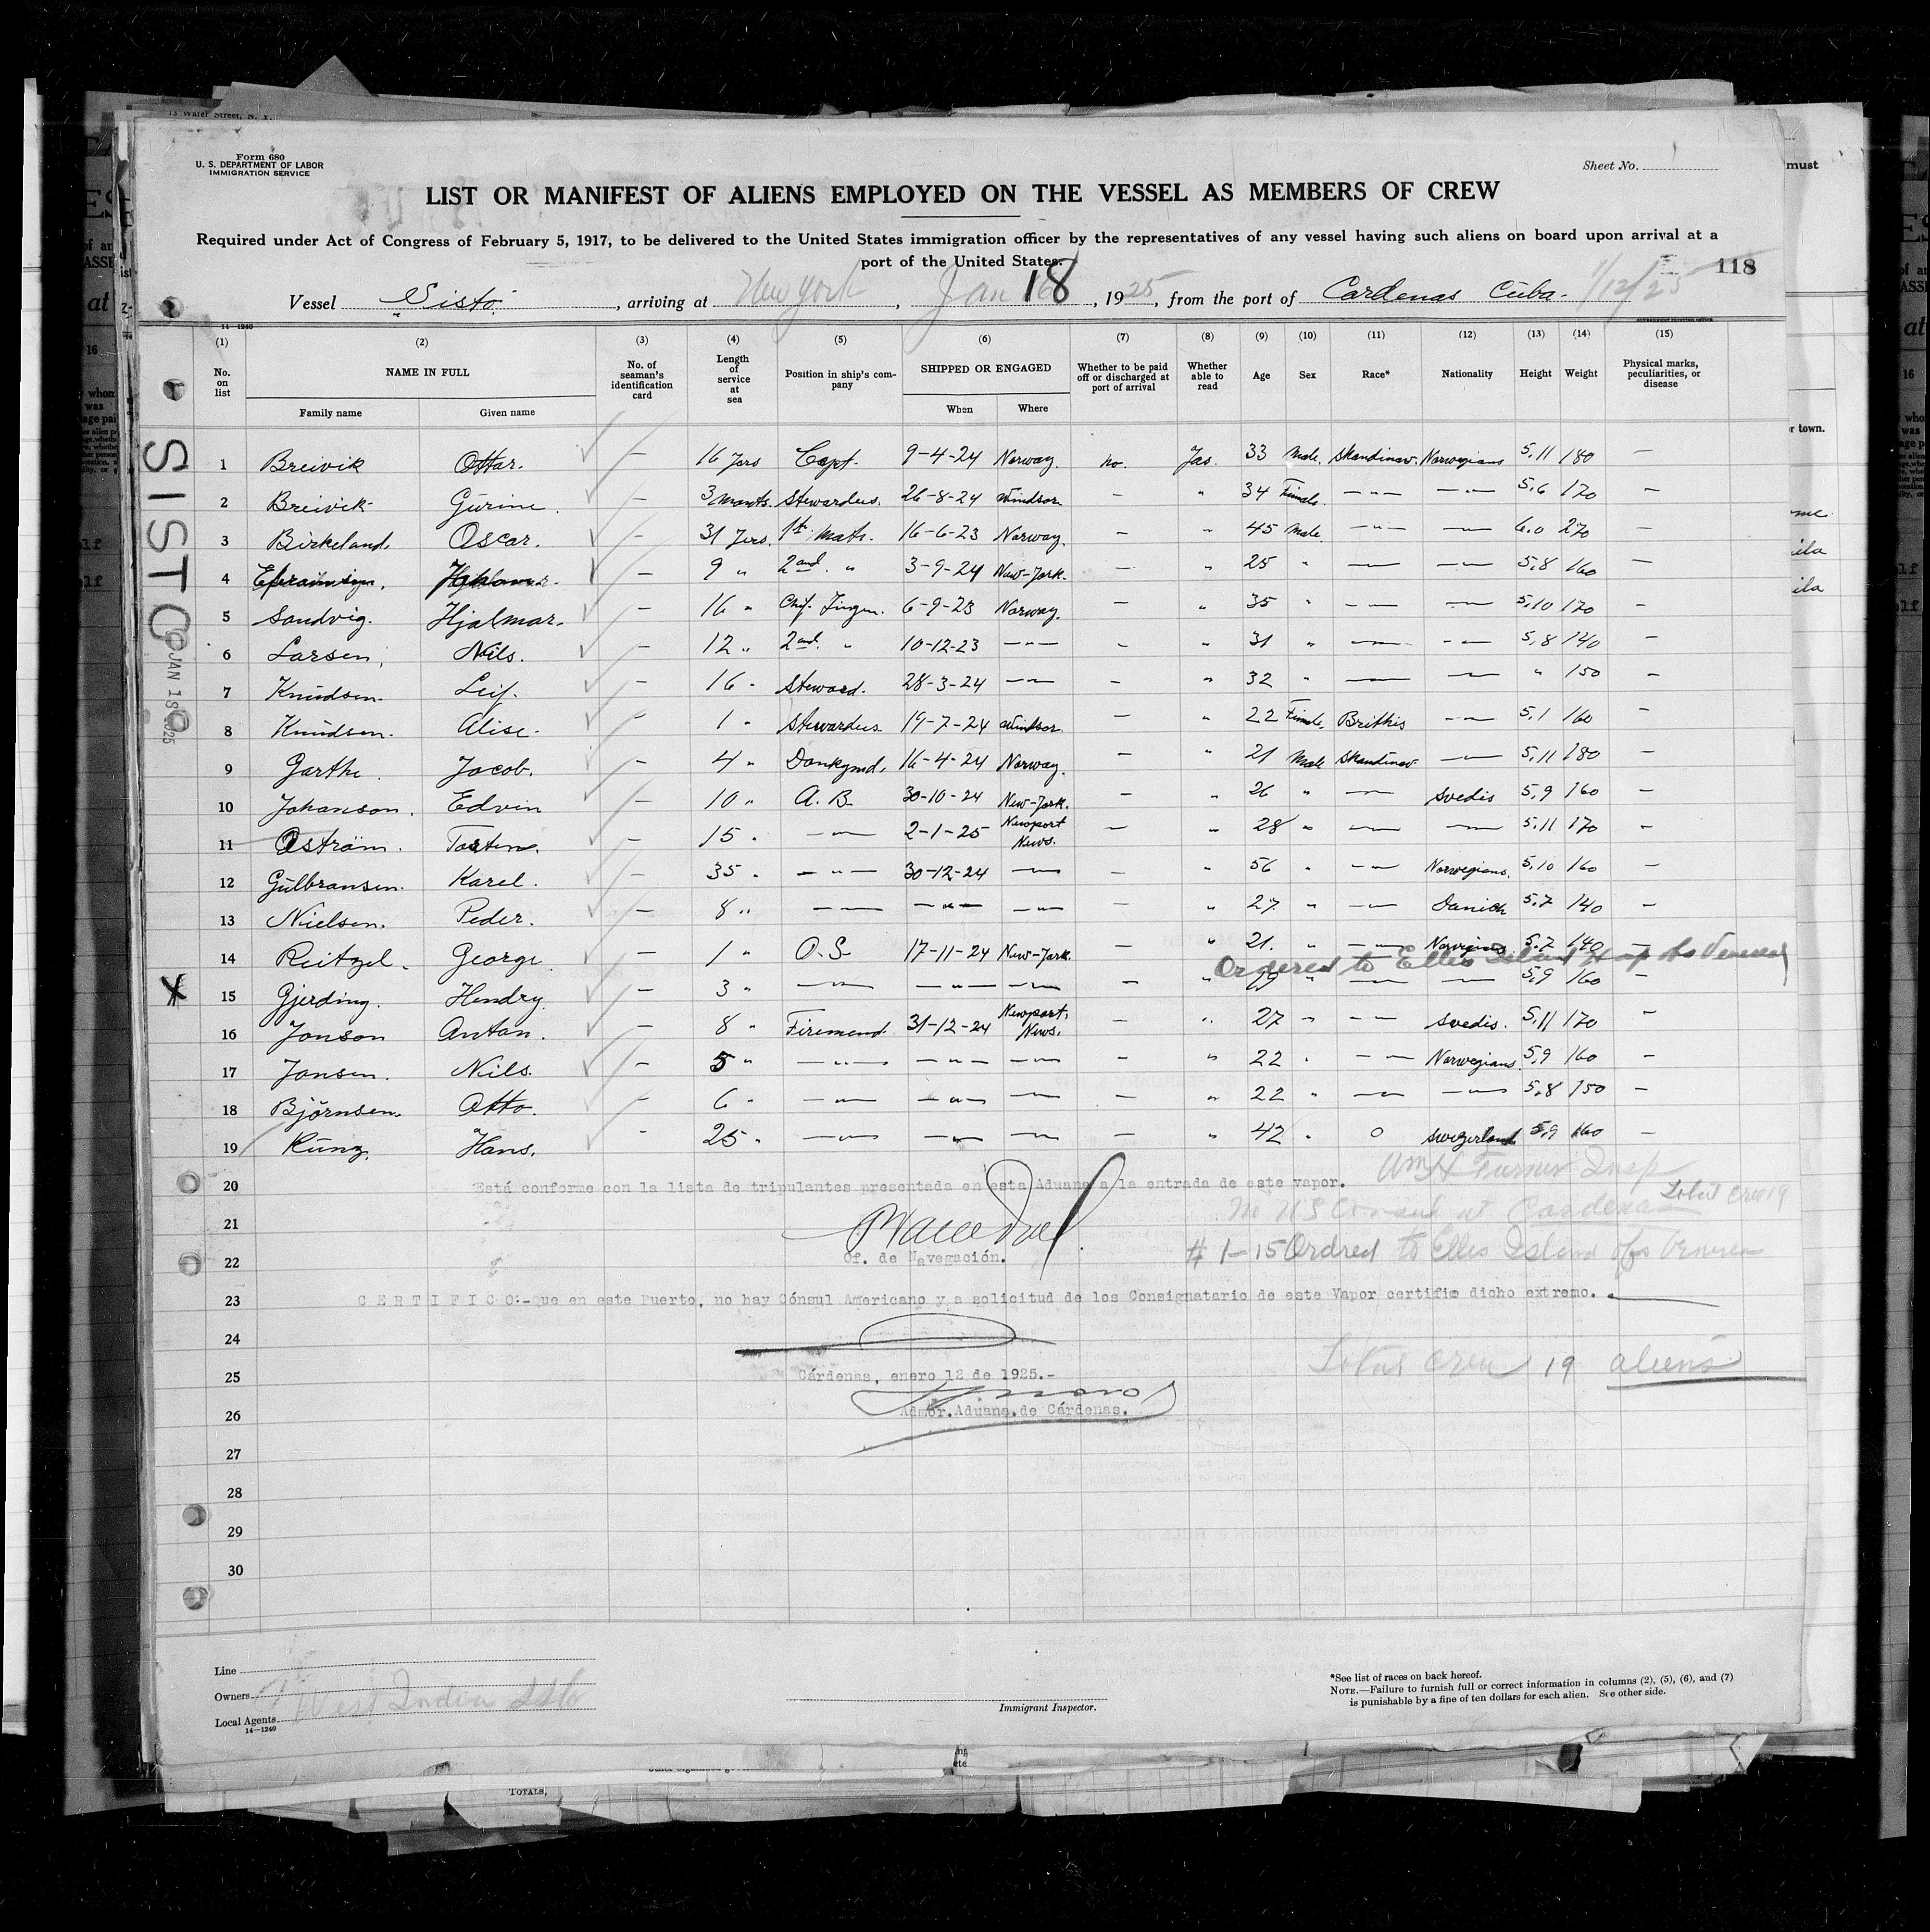 Form 680
U. S. DEPARTMENT OF LABOR
IMMIGRATION SERVICE
Sheet No. 1
LIST OR MANIFEST OF ALIENS EMPLOYED ON THE VESSEL AS MEMBERS OF CREW
Required under Act of Congress of February 5, 1917, to be delivered to the United States immigration officer by the representatives of any vessel having such aliens on board upon arrival at a
port of the United States.
118
Vessel Sisto, arriving at New York, Jan 18, 1925, from the port of Cardenas Cuba. 1/12/25
14—1240
(1) (2) (3) (4) (5) (6) (7) (8) (9) (10) (11) (12) (13) (14) (15)
No. on list NAME IN FULL No. of seaman's identification card Length of service at sea Position in ship's company SHIPPED OR ENGAGED Whether to be paid off or discharged at port of arrival Whether able to read Age Sex Race* Nationality Height Weight Physical marks, peculiarities, or disease
Family name Given name When Where
1 Breivik Ottar. — 16 Jers Capt. 9-4-24 Norway. no. Jas. 33 Male. Skandinav. Norwegians 5,11 180 —
2 Breivik Gurine. — 3 monts. Stewardess. 26-8-24 Windsor — " 34 Fimale. — " — — " — 5,6 170 —
3 Birkeland, Oscar. — 31 Jers. 1st Mats. 16-6-23 Norway. — " 45 Male. — " — — " — 6.0 270 —
4 Efraimsen, — 9 " 2nd " 3-9-24 New-Jork. — " 25 " — " — — " — 5,8 160 —
5 Sandvig. Hjalmar. — 16 " Chif. Jingen. 6-9-23 Norway. — " 35 " — " — — " — 5,10 170 —
6 Larsen, Nils. — 12 " 2nd " 10-12-23 — " — — " 31 " — " — — " — 5,8 140 —
7 Knudsen. Leif. — 16 " Steward. 28-3-24 — " — — " 32 " — " — — " — " 150 —
8 Knudsen. Alise. — 1 " Stewardess 19-7-24 Windsor. — " 22 Fimale. Brithis — " — 5,1 160 —
9 Garthe. Jacob. — 4 " Donkymd. 16-4-24 Norway. — " 21 Male Skandinav — " — 5,11 180 —
10 Johanson. Edvin — 10 " A. B. 30-10-24 New-Jork. — " 26 " — " — Svedis 5,9 160 —
11 Oström. Torsten. — 15 " — " — 2-1-25 Newport News. — " 28 " — " — — " — 5,11 170 —
12 Gulbransen. Karel. — 35 " — " — 30-12-24 — " — — " 56 " — " — Norwegians. 5,10 160 —
13 Nielsen. Peder. — 8 " — " — — " — — " — — " 27 " — " — Danich 5,7 140 —
14 Reitzel. George. — 1 " O.S. 17-11-24 New-Jork. — " 21. " — " — Norwegians 5,7 140 —
Ordered to Ellis Island
X 15 Gjerding. Hendry — 3 " — " — — " — — " — — " 19 " — " — — " — 5,9 160 —
16 Jonson Antan. — 8 " Firemend. 31-12-24 Newport, News. — " 27 " — " — Svedis. 5,11 170 —
17 Jansen. Nils. — 5 " — " — — " — — " — — " 22 " — " — Norwegians. 5,9 160 —
18 Björnsen. Otto. — 6 " — " — — " — — " — — " 22 " — " — — " — 5,8 150 —
19 Küng. Hans. — 25 " — " — — " — — " — — " 42 " O Swizerland 5,9 160 —
SISTO
JAN 18 1925
20
Está conforme con la lista de tripulantes presentada en esta Aduana a la entrada de este vapor.
Wm H Turner Insp
21
No US Consul at Cardenas
Total crew 19
22
Of. de Navegación.
# 1-15 Ordred to Ellis Island
23
CERTIFICO:-Que en este Puerto, no hay Cónsul Americano y a solicitud de los Consignatario de este Vapor certifico dicho extremo.
24
Total crew 19 aliens
25
Cárdenas, enero 12 de 1925.-
26
Admor. Aduana. de Cárdenas.
27
28
29
30
Line
Owners
West India SS Co
Local Agents
14—1240
Immigrant Inspector.
*See list of races on back hereof.
NOTE.—Failure to furnish full or correct information in columns (2), (5), (6), and (7)
is punishable by a fine of ten dollars for each alien. See other side.
TOTALS,